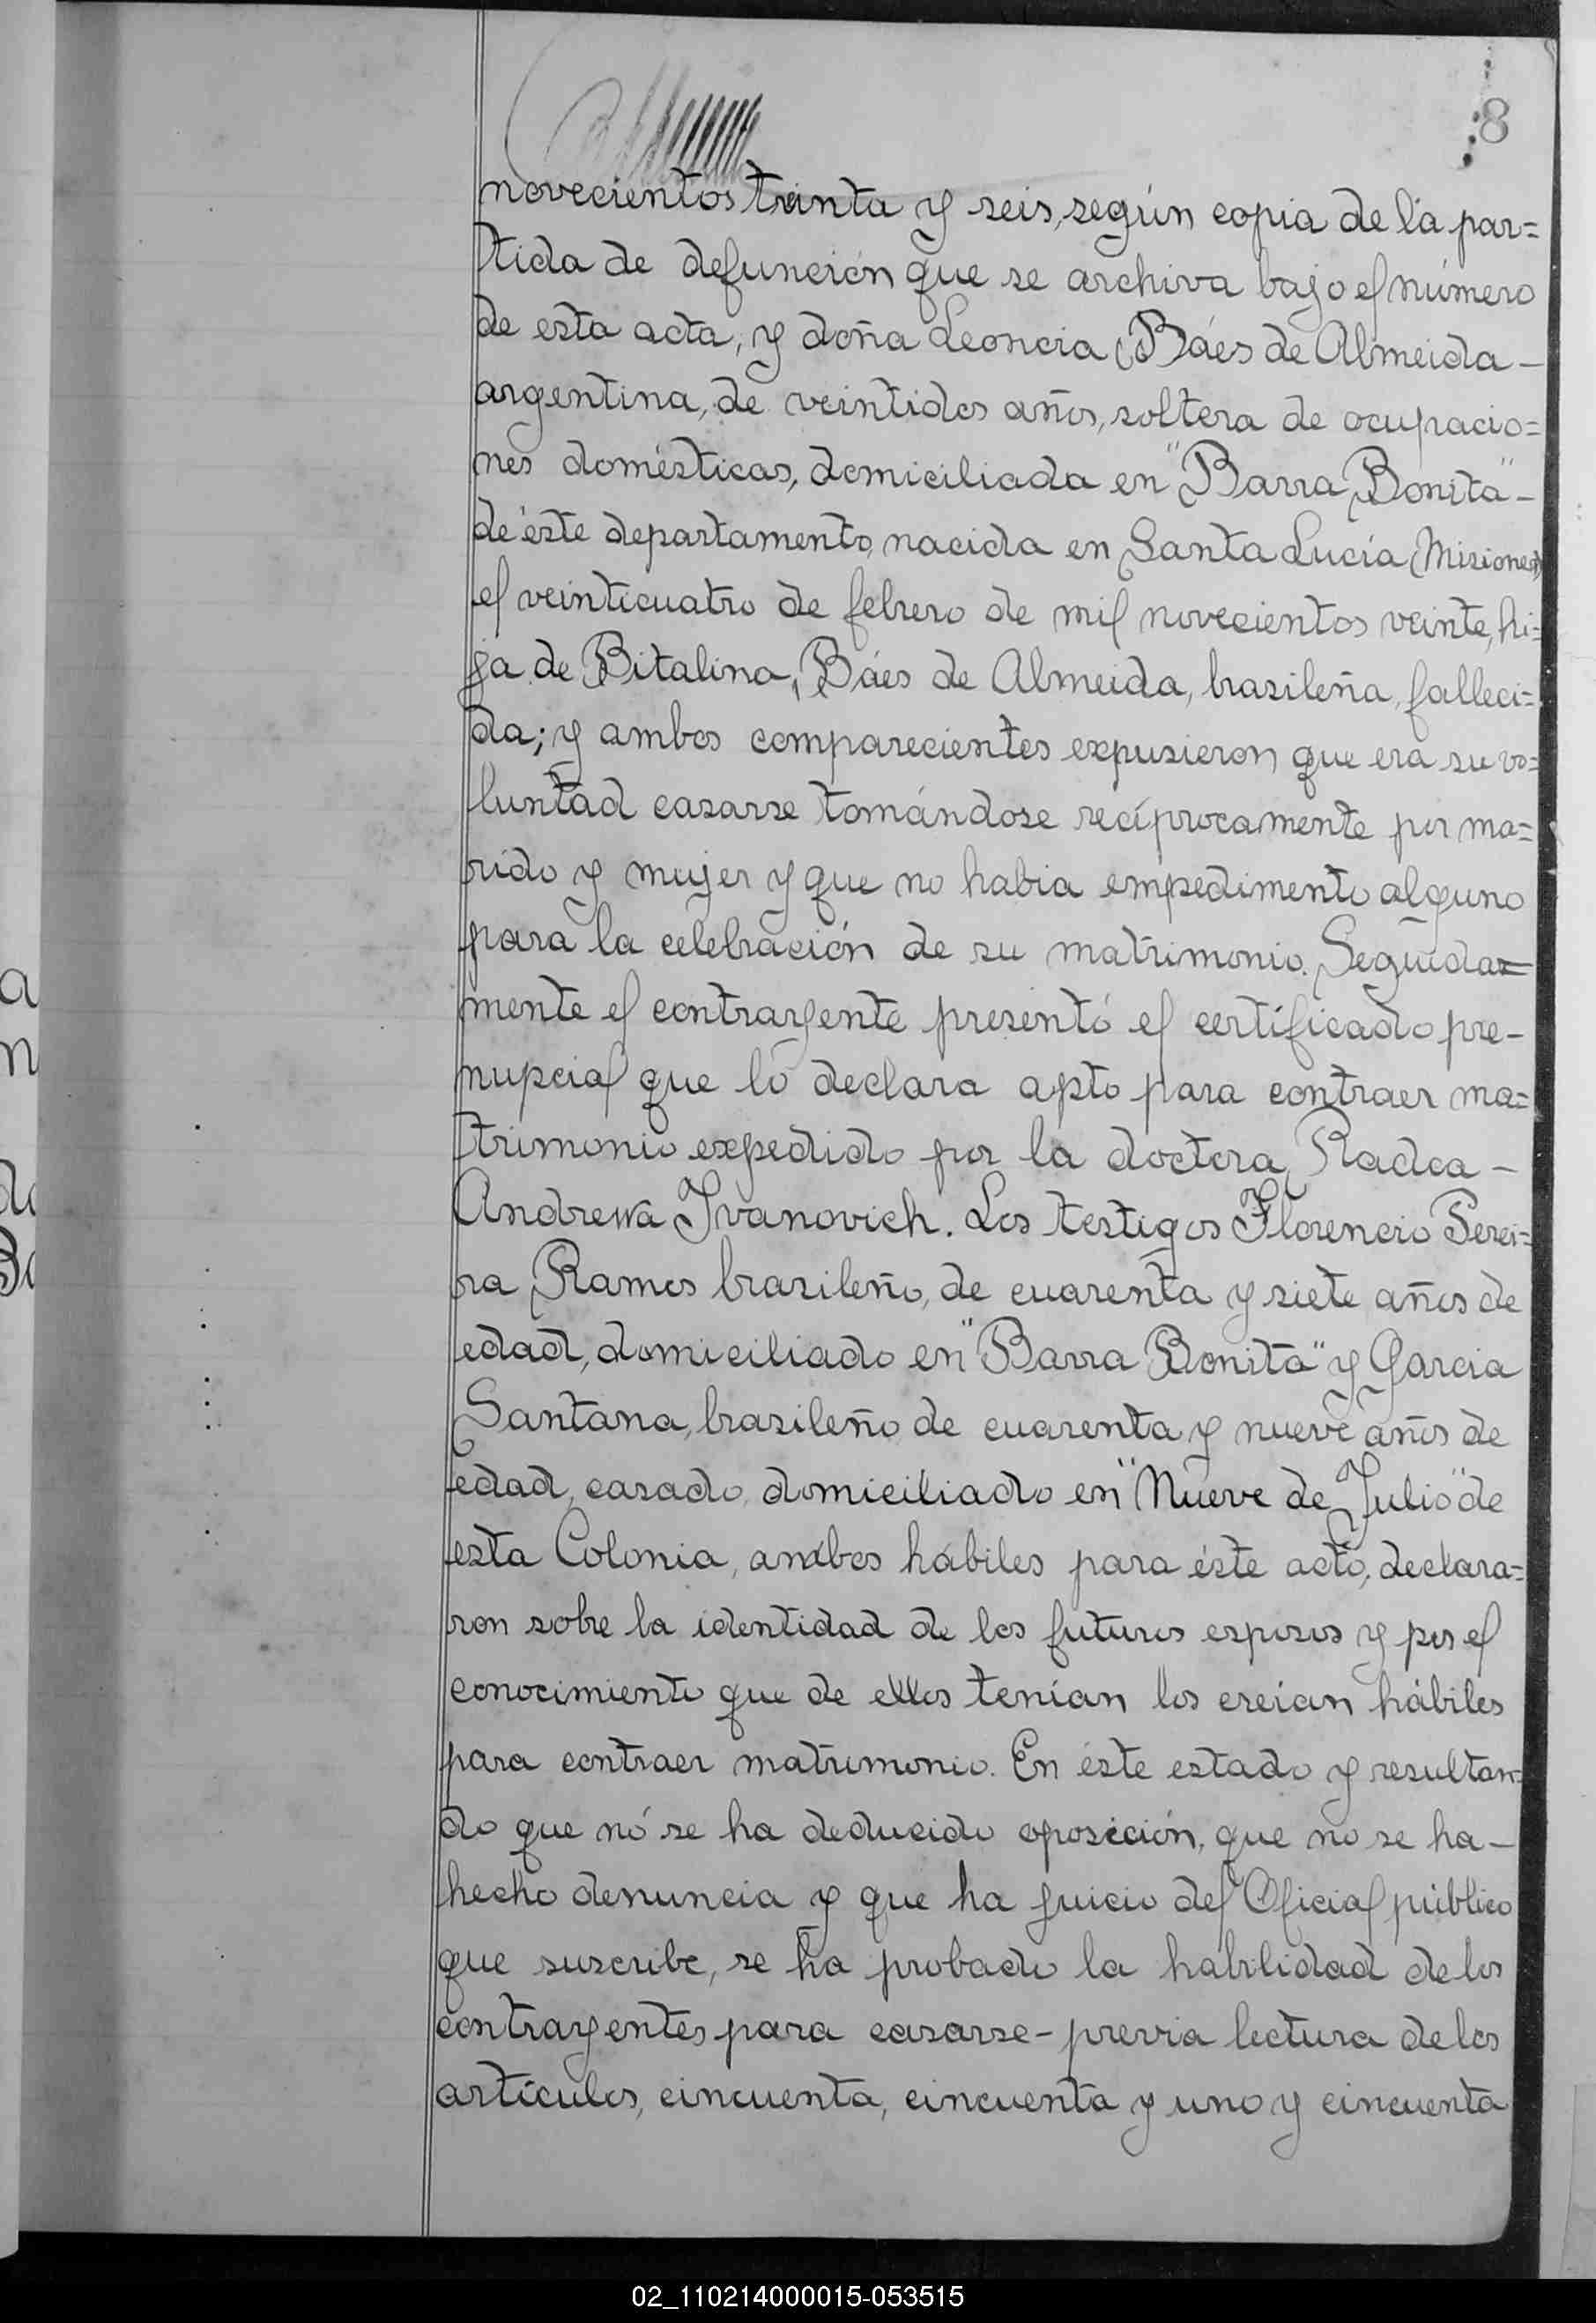 8
novecientos treinta y seis, según copia de la par=
tida de defunción que se archiva bajo el número
de esta acta, y doña Leoncia Báes de Almeida -
argentina, de veintidos años, soltera de ocupacio=
nes domésticas, domiciliada en "Barra Bonita" -
de éste departamento, nacida en Santa Lucía (Misiones)
el veinticuatro de febrero de mil novecientos veinte, hi=
ja de Bitalina Báes de Almeida, brasileña, falleci=
da; y ambos comparecientes expusieron que era su vo=
luntad casarse tomándose recíprocamente por ma=
rido y mujer y que no habia empedimento alguno
para la celebración de su matrimonio. Seguida=
mente el contrayente presentó el certificado pre-
nupcial que lo declara apto para contraer ma=
trimonio expedido por la doctora Radca -
Andrewa Ivanovich. Los testigos Florencio Perei=
ra Ramos brasileño, de cuarenta y siete años de
edad, domiciliado en "Barra Bonita" y Garcia
Santana, brasileño de cuarenta y nueve años de
edad, casado, domiciliado en "Nueve de Julio" de
esta Colonia, ambos hábiles para éste acto, declara=
ron sobre la identidad de los futuros esposos y por el
conocimiento que de ellos tenían los creían hábiles
para contraer matrimonio. En éste estado y resultan=
do que no se ha deducido oposición, que no se ha -
hecho denuncia y que ha juicio del Oficial público
que suscribe, se ha probado la habilidad de los
contrayentes para casarse - previa lectura de los
artículos, cincuenta, cincuenta y uno y cincuenta
a
n
da
Ba
02_110214000015-053515